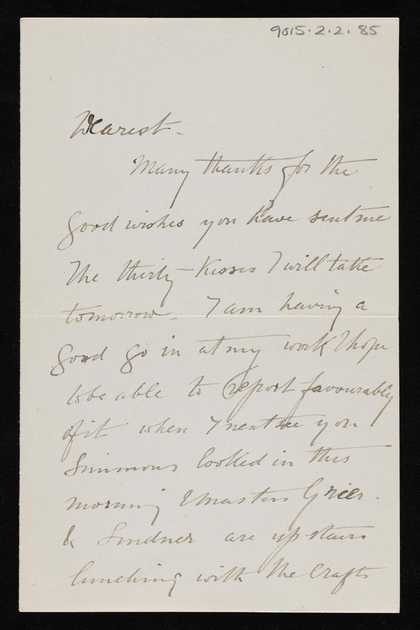 9015.2.2.85
Dearest -
Many thanks for the
good wishes you have sent me
The thirty - Kisses I will take
tomorrow - I am having a
good go in at my work I hope
to be able to report favourably
of it when I next see you
Simmons looked in this
morning Masters Grier -
& Lindner are upstairs
lunching with the Crafts